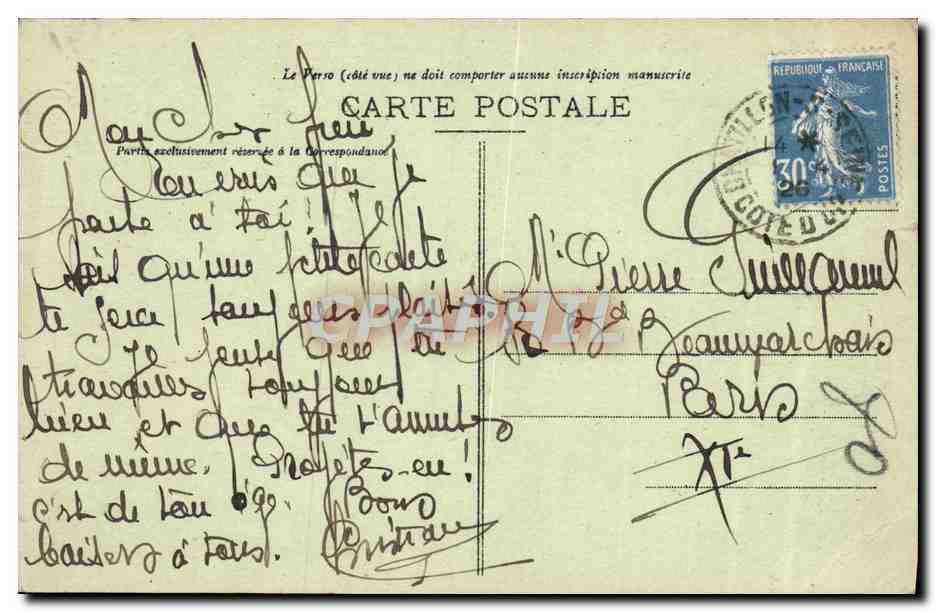 Le Verso (côté vue) ne doit comporter aucune inscription manuscrite
CARTE POSTALE
Partie exclusivement réservée à la Correspondance
Mon cher
Tu vois que je
parle à toi! Je
sais qu'une petite carte
te fera toujours plaisir
Je pense que tu
travailles toujours
bien et que tu t'amuses
de même. Profites-en!
c'est de ton âge. Bons
baisers à tous.
REPUBLIQUE FRANÇAISE
30c
POSTES
CHATILLON-S-SEINE
26
COTE D'OR
Mr Pierre Guillaumel
Bd Beaumarchais
Paris
XIe
CPAPHIL